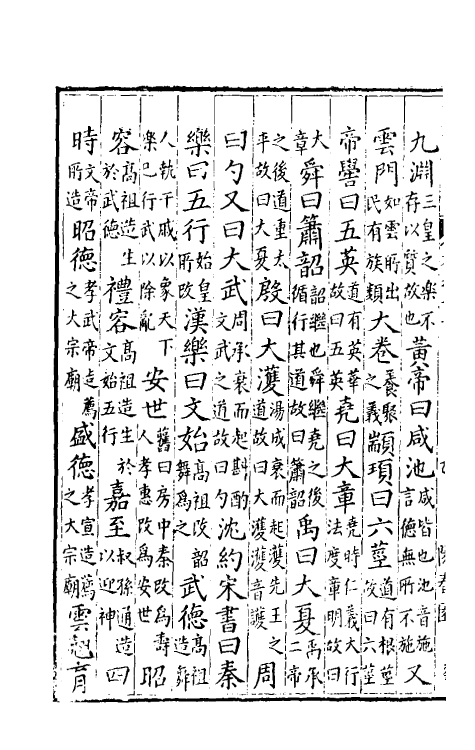 九淵三皇之樂不存以質故也黃帝曰咸池咸皆也池音施言德無所不施又
雲門如雲所出民有族類大卷養聚之義顓頊曰六莖道有根莖故曰六莖
帝嚳曰五英道有英華故曰五英堯曰大章堯時仁義大行法度章明故曰大
章舜曰簫韶韶繼也舜繼堯之後循行其道故曰簫韶禹曰大夏禹承二帝
之後道重太平故曰大夏殷曰大濩湯成衰而起濩先王之道故曰大濩濩音護周
曰勺又曰大武周承衰而起斟酌文武之道故曰勺沈約宋書曰秦
樂曰五行始皇所改漢樂曰文始高祖改韶舞爲之武德高祖造舞
人執干戚以象天下樂已行武以除亂安世舊曰房中秦改爲壽人孝惠改爲安世昭
容高祖造生於武德禮容高祖造生於文始五行嘉至叔孫通造以迎神四
時文帝所造昭德孝武帝造薦之大宗廟盛德孝宣造薦之大宗廟雲翹育